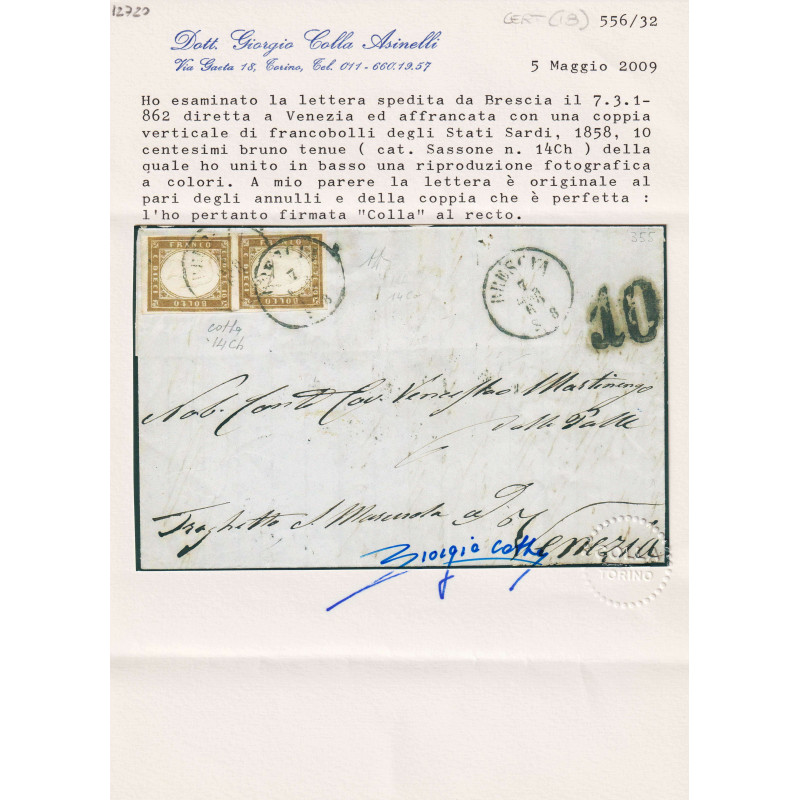 12720
CERT (18) 556/32
Dott. Giorgio Colla Asinelli
Via Gaeta 18, Torino, Tel. 011-660.19.57
5 Maggio 2009
Ho esaminato la lettera spedita da Brescia il 7.3.1-
862 diretta a Venezia ed affrancata con una coppia
verticale di francobolli degli Stati Sardi, 1858, 10
centesimi bruno tenue ( cat. Sassone n. 14Ch ) della
quale ho unito in basso una riproduzione fotografica
a colori. A mio parere la lettera è originale al
pari degli annulli e della coppia che è perfetta :
l'ho pertanto firmata "Colla" al recto.
355
FRANCO
BOLLO
FRANCO
BOLLO
BRESCIA
7
S 8
10
14Ch
Colla
14Ch
Nob. Conte Cav. Martinengo
dalle Palle
Traghetto S.
Venezia
Giorgio Colla
TORINO